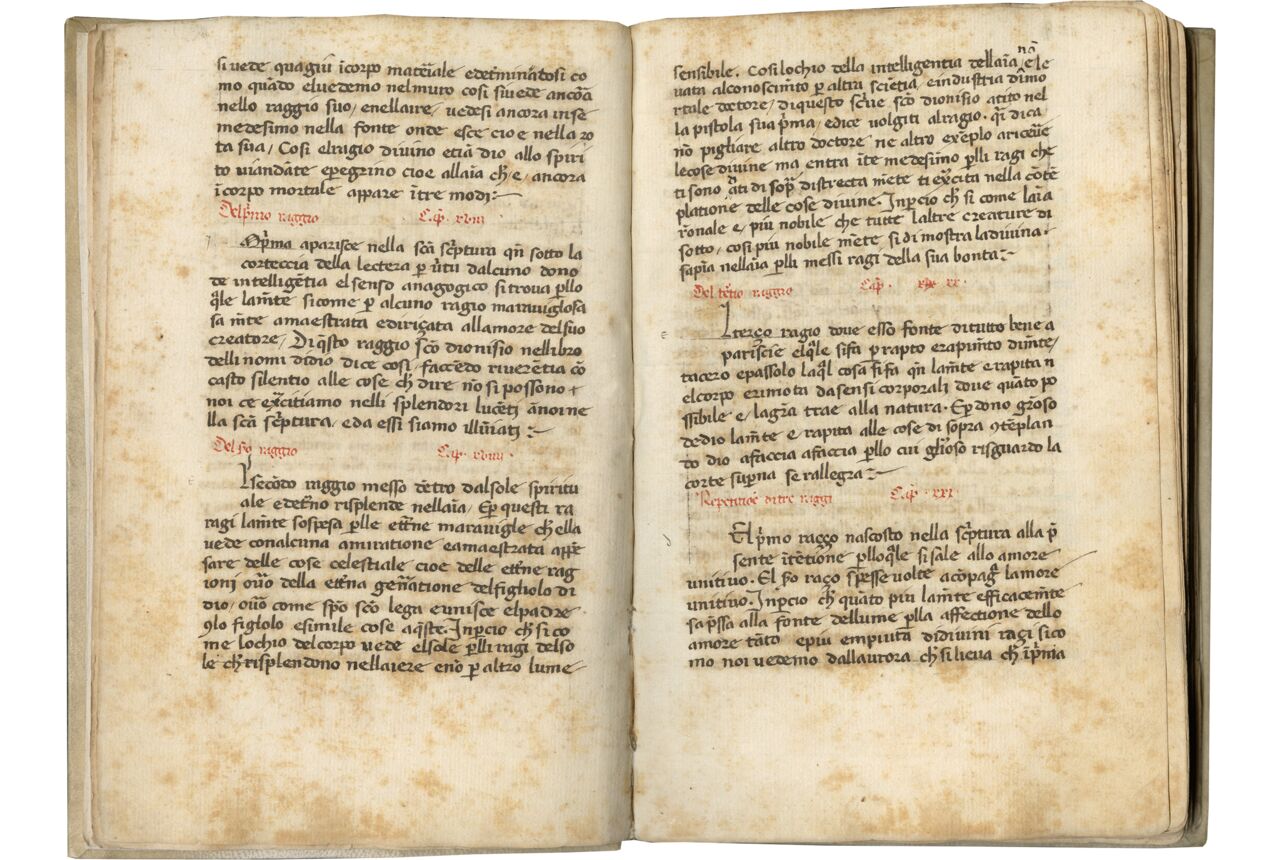 si vede quagiu ĩcorpo mateĩale edeterminatosi co
mo quãdo eluedemo nelmuro cosi siuede ancoã
nello raggio suo, enellaire, uedesi ancora inse
medesimo nella fonte onde esce cioe nella ro
ta sua, Cosi elragio diuino etiã dio allo spiri
to uiandãte eperegrino cioe allaĩa ch̃ e, ancora
ĩcorpo mortale appare ĩtre modi:~
Delp̃mo raggio Cap̃. xviii
Mp̃ma aparisce nella scã sc̃ptura qñ sotto la
corteccia della lectera ꝑ ũtu dalcuno dono
de intelligẽtia el senso anagogico si troua ꝑllo
q̃le lam̃te si come ꝑ alcuno ragio marauiglosa
sa m̃te amaestrata ediriçata allamore delsuo
creatore, Di q̃sto raggio sc̃o dionisio nellibro
delli nomi didio dice cosi, faccẽdo riuerẽtia cõ
casto silentio alle cose ch̃ dire nõ si possono +
noi ce exc̃itiamo nelli splendori lucẽti ãnoi ne
lla scã sc̃ptura, eda essi siamo illũiati:~
Del s̃o raggio Cap̃. xviiii.
Lsecõdo raggio messo dẽtro dalsole spiritu
ale edet̃no risplende nellaĩa, Eꝑ questi ra
ragi lam̃te sospesa ꝑlle et̃ne marauigle ch̃ ella
uede conalcuna amiratione eamaestrata a pẽ
sare delle cose celestiale cioe delle et̃ne rag
ioni ouõ della et̃na gen̄atione delfigholo di
dio, ouõ come sp̃o sc̃o lega eunisce elpadre
ꝯlo figlolo esimile cose aq̃ste. Inꝑcio ch̃ si co
me lochio delcorpo uede elsole ꝑlli ragi delso
le ch̃ risplendono nellaiere enõ ꝑ altro lume
sensibile. Cosi lochio della intelligentia dellaĩa nõ e le
uata alconoscim̃to ꝑ altri sciẽtia, eindustria dimo
rtale doctore, di questo sc̃ue sc̃o dionisio a tito nel
la pistola sua p̃ma, edice uolgiti alragio. q̃i dica
nõ pigliare altro doctore ne altro exẽplo ariceũe
lecose diuine ma entra ĩte medesimo ꝑlli ragi che
ti sono dati di sop̃ distrecta m̃ete ti exc̃ita nella cõtẽ
platione delle cose diuine. Inꝑcio ch̃ si come laĩa
rõnale e, piu nobile che tutte laltre creature di
sotto, cosi piu nobile m̃ete si di mostra ladiuina
sapĩa nellaĩa ꝑlli messi ragi della sua bonta:~
Del terzo raggio Cap̃. xix xx.
Lterço ragio doue esso fonte di tutto bene a
pariscie elq̃le sifa ꝑ rapto erapim̃to dim̃te,
tacero epassolo laq̃l cosa sifa qñ lam̃te erapita ĩ
elcorpo erimota dasensi corporali doue quãto po
ssibile e, lagrã trae alla natura. Eꝑ dono gr̃oso
dedio lam̃te e rapita alle cose di sopra ꝯtẽplan
do dio afaccia afaccia ꝑllo cui gl̃ioso risguardo la
corte suꝑna se rallegra:~
Repetitiõe di tre raggi Cap̃. xxi
El p̃mo raço nascosto nella sc̃ptura alla p̃
sente ĩtẽtiõne ꝑlloq̃le si sale allo amore
unitiuo. El s̃o raço spesse uolte acõpag̃ lamore
unitiuo. Inꝑcio ch̃ quãto piu lam̃te efficacem̃te
sa p̃ssa alla fonte dellume ꝑlla affectione dello
amore tãto epiu empiuta didiuini ragi si co
mo noi uedemo dallaurora ch̃ silieua ch̃ ĩp̃mia